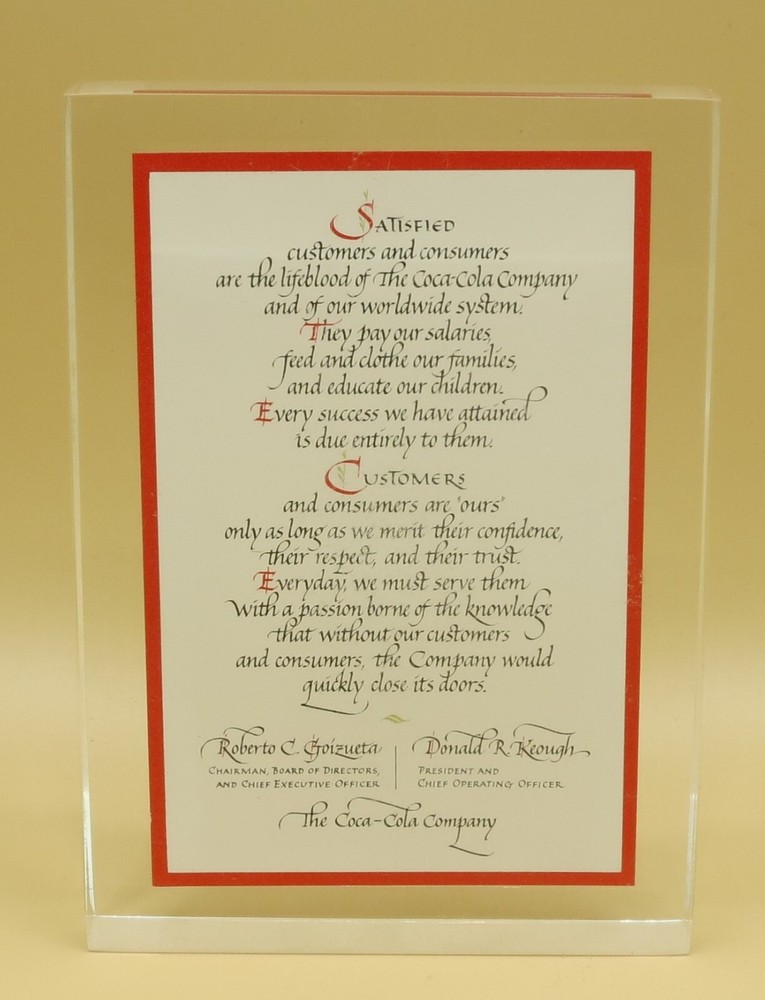 SATISFIED
customers and consumers
are the lifeblood of The Coca-Cola Company
and of our worldwide system.
They pay our salaries,
feed and clothe our families,
and educate our children.
Every success we have attained
is due entirely to them.
CUSTOMERS
and consumers are "ours"
only as long as we merit their confidence,
their respect, and their trust.
Everyday, we must serve them
with a passion borne of the knowledge
that without our customers
and consumers, the Company would
quickly close its doors.
Roberto C. Goizueta
CHAIRMAN, BOARD OF DIRECTORS,
AND CHIEF EXECUTIVE OFFICER
Donald R. Keough
PRESIDENT AND
CHIEF OPERATING OFFICER
The Coca-Cola Company